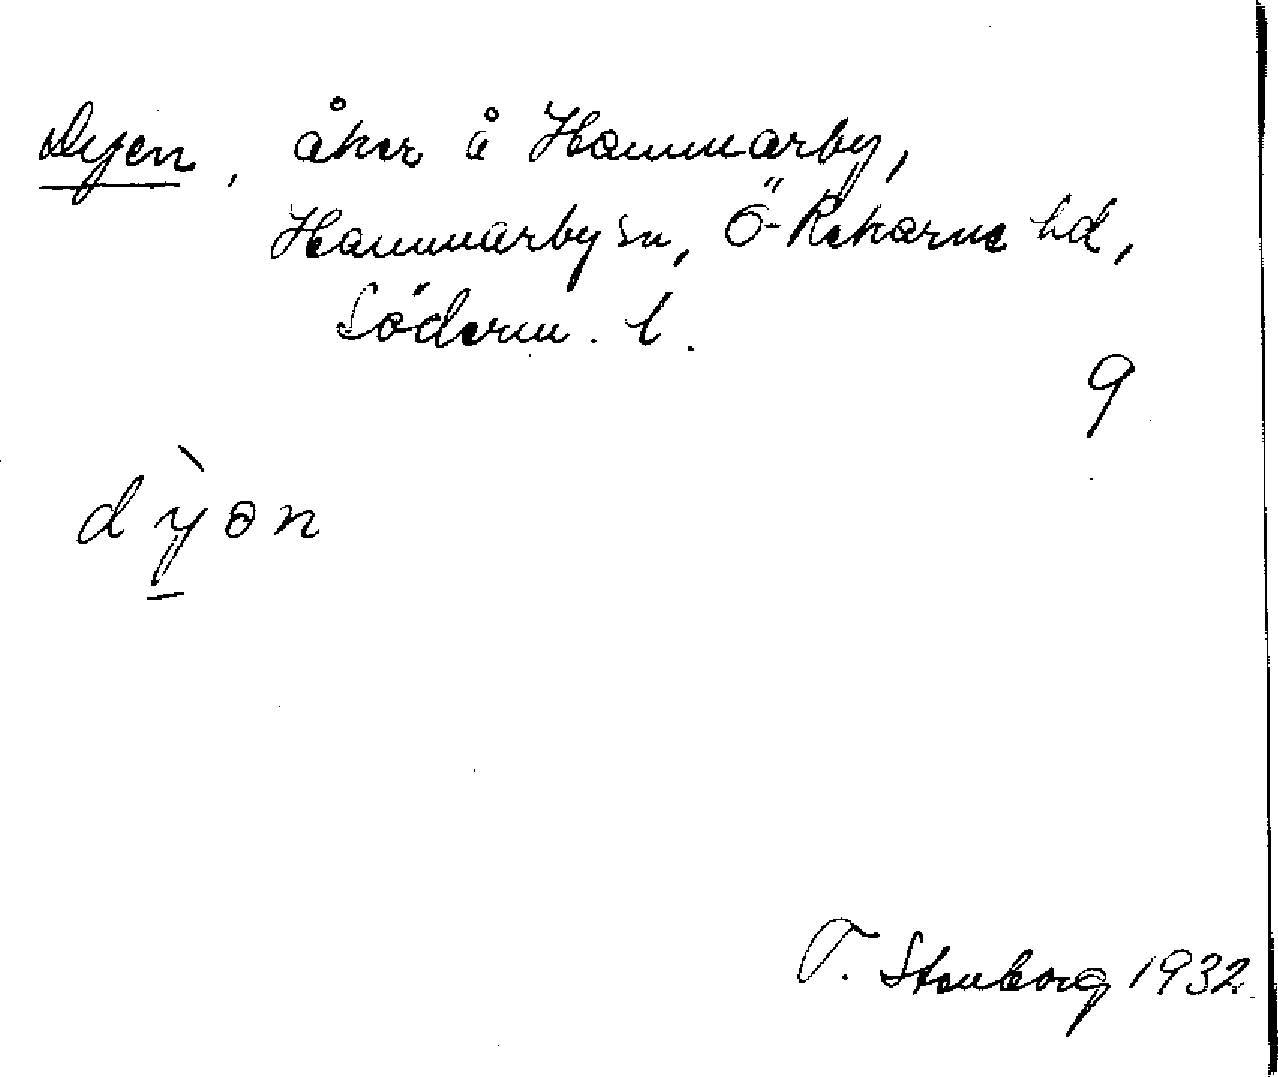 Dyen, åker å Hammarby,
Hammarby sn, Ö-Rekarne hd,
Söderm. l.
9
dỳən
T. Stenborg 1932